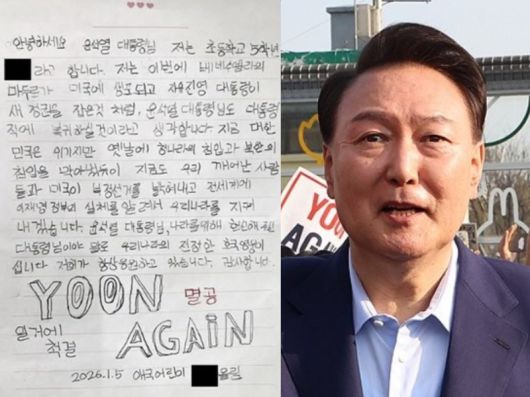 안녕하세요 윤석열 대통령님 저는 초등학교 5학년
라고 합니다. 저는 이번에 베네수엘라의
마두로가 미국에 생포되고 자유진영 대통령이
새 정권을 잡은것 처럼, 윤석열 대통령님도 대통령
직에 복귀하실것이라고 생각합니다 지금 대한
민국은 위기지만 옛날에 청나라의 침입과 북한의
침입을 막아냈듯이 지금도 우리 깨어난 사람
들과 미국이 부정선거를 밝혀내고 전세계에
이재명 정부의 실체를 알려서 우리나라를 지켜
내겠습니다. 윤석열 대통령님, 나라를위해 헌신해주신
대통령님이야 말로 우리나라의 진정한 호국영웅이
십니다 저희가 항상응원하고 있습니다. 감사합니다.
YOON 멸공
일거에
척결 AGAIN
2026.1.5 애국어린이 올림
YOO
AGA